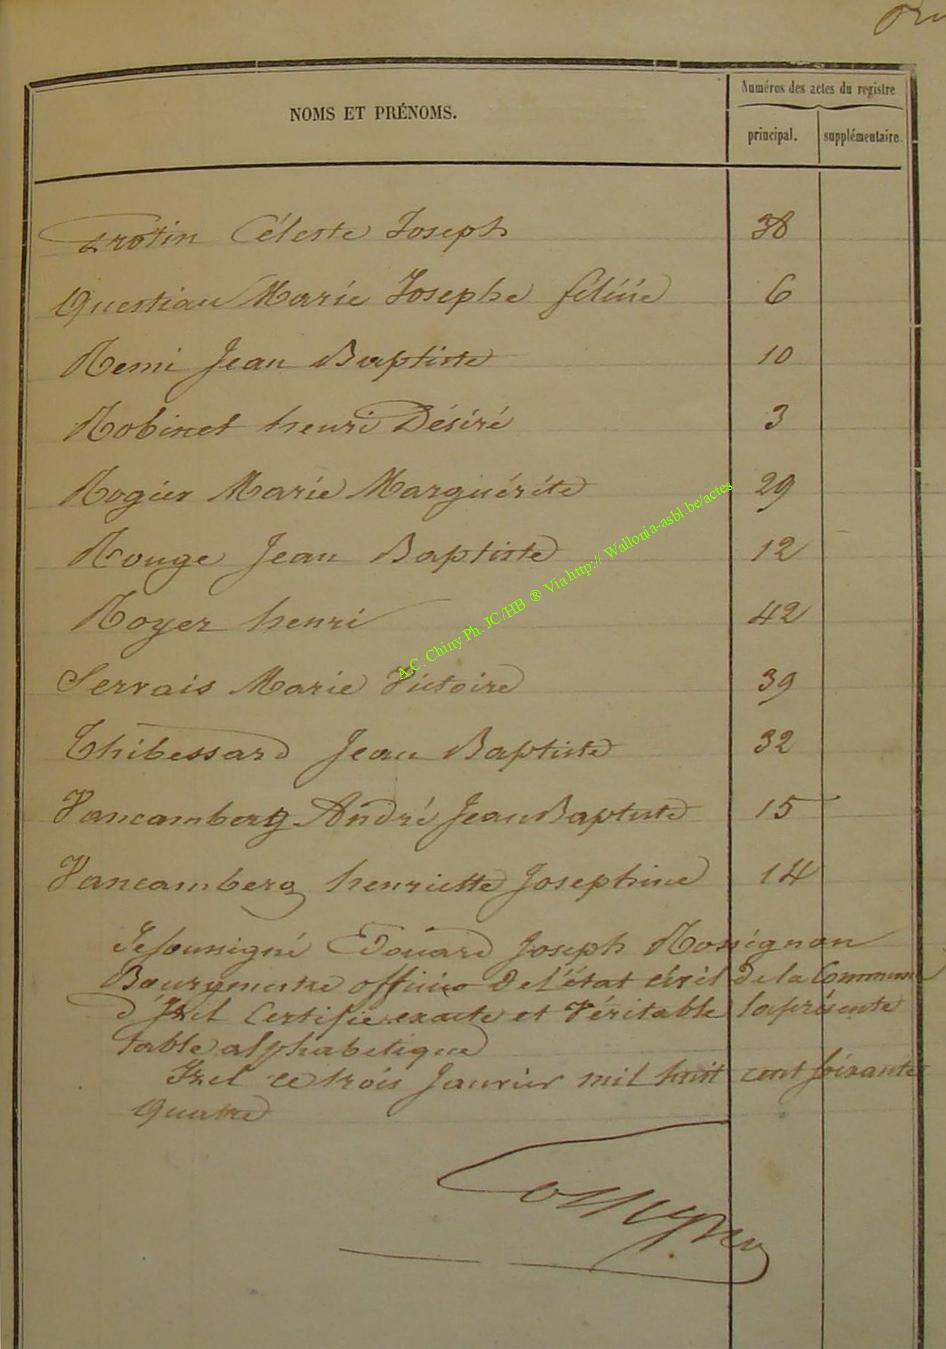 NOMS ET PRÉNOMS.
Numéros des actes du registre
principal. supplémentaire.
Protin Céleste Joseph 38
Questiau Marie Josephe 6
Remi Jean Baptiste 10
Robinet henri Désiré 3
Rogier Marie Marguérite 29
Rouge Jean Baptiste 12
Royer henri 42
Servais Marie Victoire 39
Thibessard Jean Baptiste 32
Vancamberg André Jean Baptiste 15
Vancamberg henriette Josephine 14
Je soussigné Edouard Joseph Rossignon
Bourgmestre officier De l'état civil de la Commune
d'Izel Certifie exacte et Véritable la présente
table alphabetique
Izel ce trois Janvier mil huit cent soixante
quatre
A.C. Chiny Ph. JC/HB ® Via http:// Wallonia-asbl.be/actes